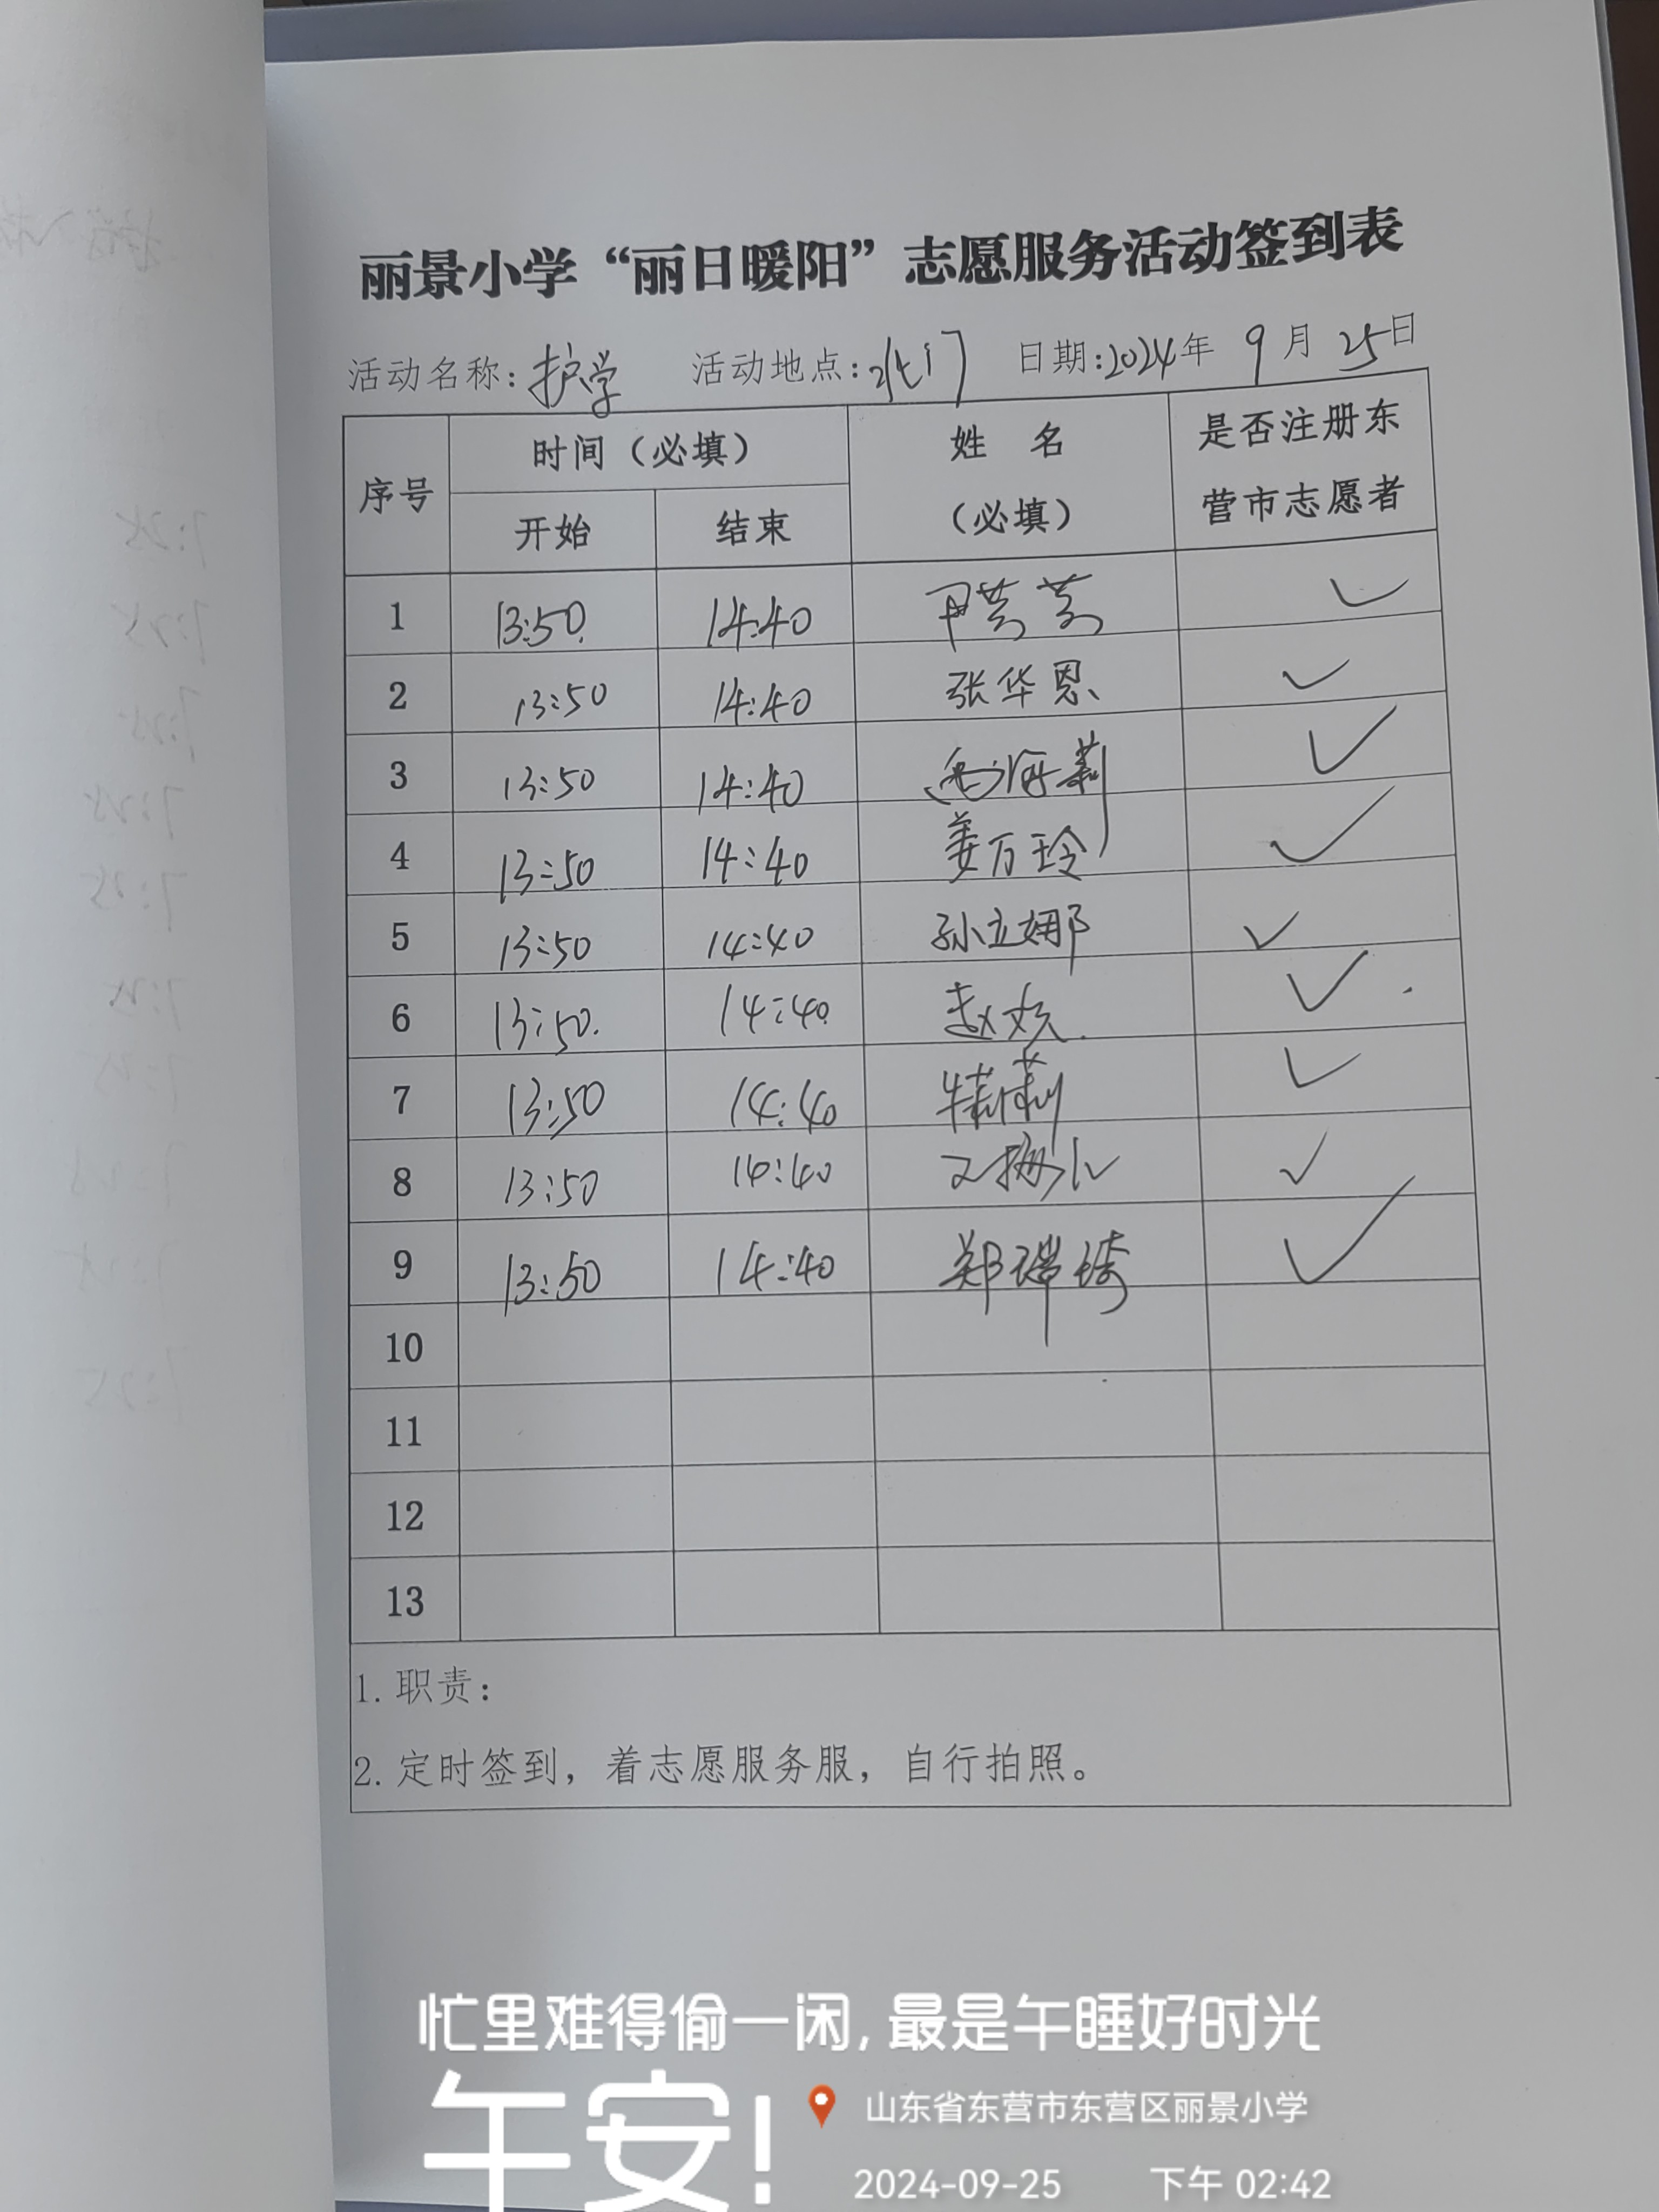 丽景小学“丽日暖阳”志愿服务活动签到表
活动名称:护学 活动地点: 日期:2024年 9月 25日
序号 时间（必填） 姓 名（必填） 是否注册东营市志愿者
开始 结束
1 13:50 14:40 尹芸芸 ✓
2 13:50 14:40 张华恩 ✓
3 13:50 14:40 ✓
4 13:50 14:40 姜万玲 ✓
5 13:50 14:40 孙立娜 ✓
6 13:50 14:40 赵 ✓
7 13:50 14:40 ✓
8 13:50 14:40 ✓
9 13:50 14:40 郑瑞琦 ✓
10
11
12
13
1.职责：
2.定时签到，着志愿服务服，自行拍照。
忙里难得偷一闲,最是午睡好时光
午安!
山东省东营市东营区丽景小学
2024-09-25 下午 02:42